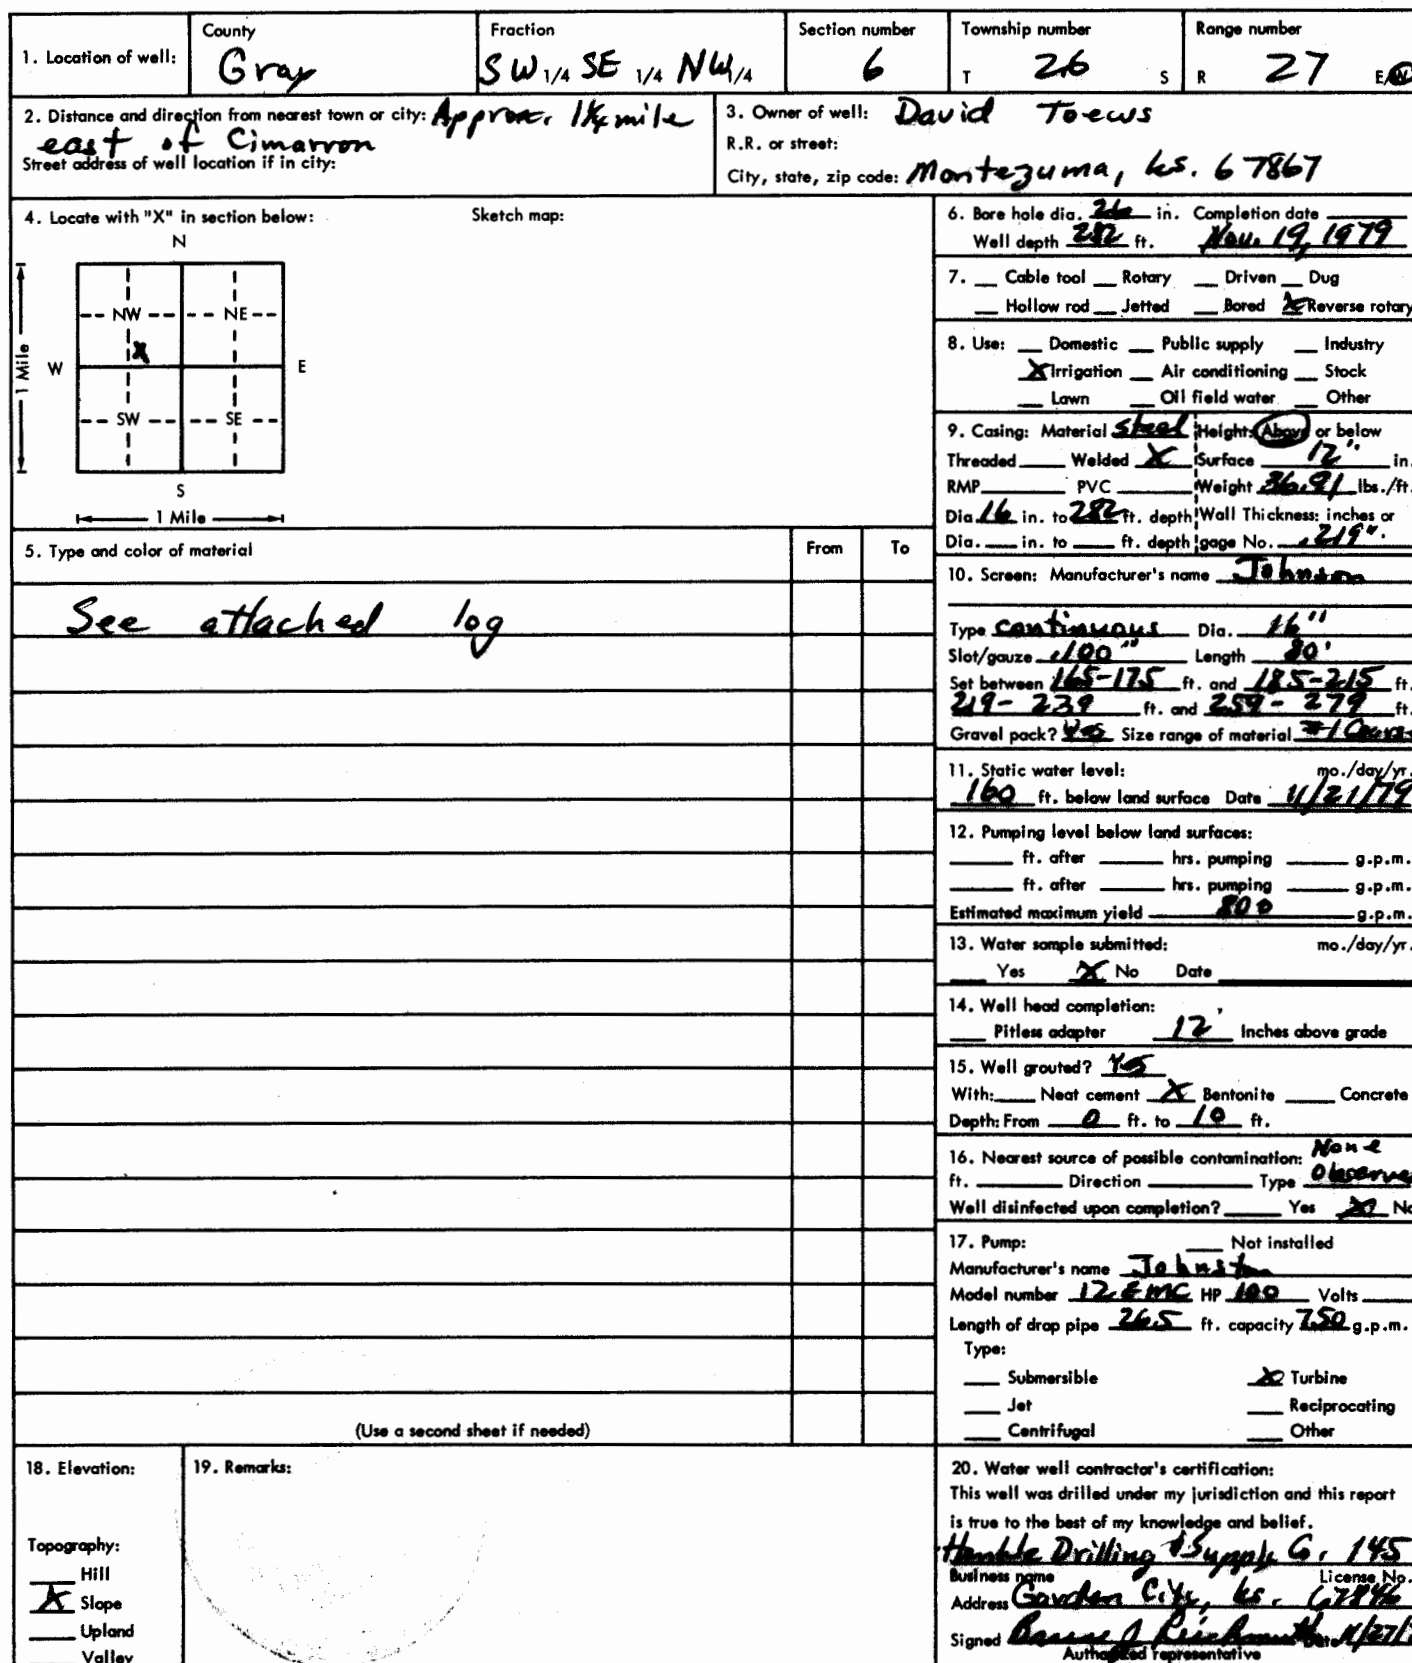 1. Location of well:
County
Gray
Fraction
SW 1/4 SE 1/4 NW 1/4
Section number
6
Township number
T 26 S
Range number
R 27 E/W
2. Distance and direction from nearest town or city: Approx. 1¼ mile
east of Cimarron
Street address of well location if in city:
3. Owner of well: David Toews
R.R. or street:
City, state, zip code: Montezuma, ks. 67867
4. Locate with "X" in section below:
Sketch map:
N
NW NE
X
W E
SW SE
S
1 Mile
1 Mile
5. Type and color of material From To
See attached log
(Use a second sheet if needed)
6. Bore hole dia. 26 in. Completion date
Well depth 282 ft. Nov. 19, 1979
7. Cable tool Rotary Driven Dug
Hollow rod Jetted Bored X Reverse rotary
8. Use: Domestic Public supply Industry
X Irrigation Air conditioning Stock
Lawn Oil field water Other
9. Casing: Material steel Height: Above or below
Threaded Welded X Surface 12" in.
RMP PVC Weight 36.91 lbs./ft.
Dia 16 in. to 282 ft. depth Wall Thickness: inches or
Dia. in. to ft. depth gage No. .219".
10. Screen: Manufacturer's name Johnson
Type continuous Dia. 16"
Slot/gauze .100" Length 80'
Set between 165-175 ft. and 185-215 ft.
219-239 ft. and 259-279 ft.
Gravel pack? Yes Size range of material #1 Coarse
11. Static water level: mo./day/yr.
160 ft. below land surface Date 11/21/79
12. Pumping level below land surfaces:
ft. after hrs. pumping g.p.m.
ft. after hrs. pumping g.p.m.
Estimated maximum yield 800 g.p.m.
13. Water sample submitted: mo./day/yr.
Yes X No Date
14. Well head completion:
Pitless adapter 12' Inches above grade
15. Well grouted? Yes
With: Neat cement X Bentonite Concrete
Depth: From 0 ft. to 10 ft.
16. Nearest source of possible contamination: None
ft. Direction Type Observed
Well disinfected upon completion? Yes X No
17. Pump: Not installed
Manufacturer's name Johnston
Model number 12 EMC HP 100 Volts
Length of drop pipe 265 ft. capacity 750 g.p.m.
Type:
Submersible X Turbine
Jet Reciprocating
Centrifugal Other
18. Elevation:
Topography:
Hill
X Slope
Upland
Valley
19. Remarks:
20. Water well contractor's certification:
This well was drilled under my jurisdiction and this report
is true to the best of my knowledge and belief.
Henkle Drilling & Supply Co. 145
Business name License No.
Address Garden City, ks. 67846
Signed Date 11/27/
Authorized representative